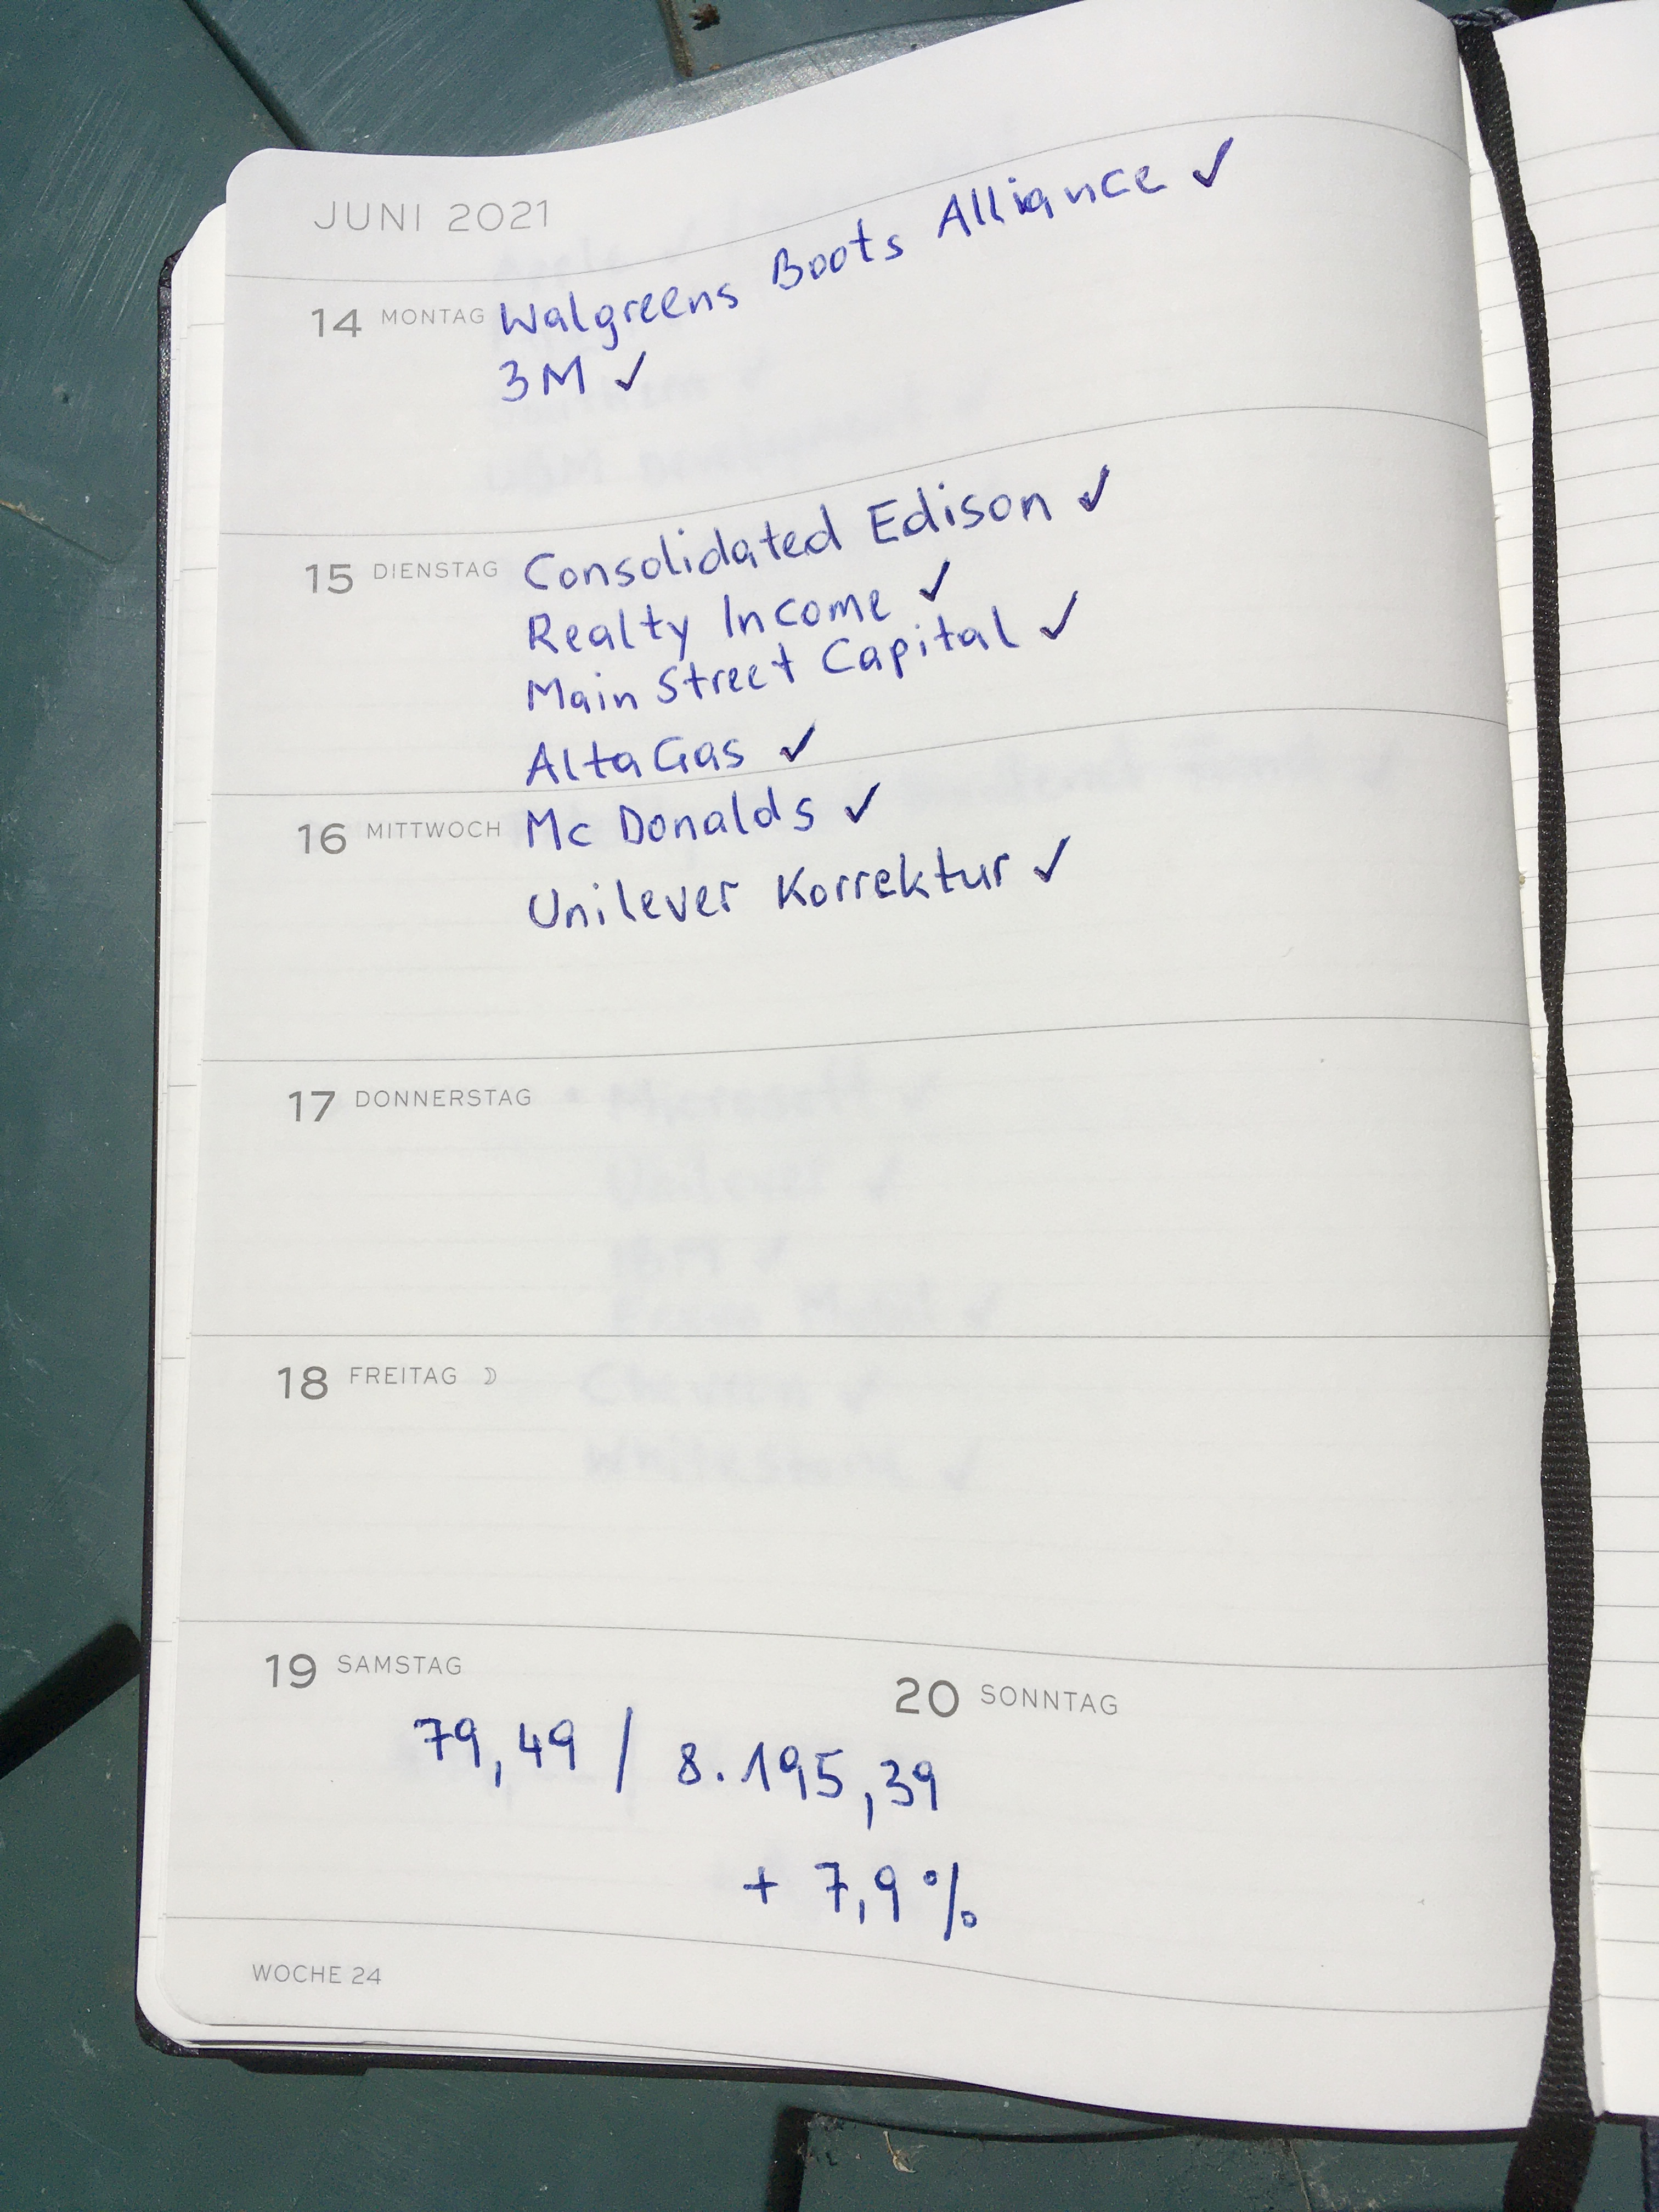 JUNI 2021
14 MONTAG Walgreens Boots Alliance ✓
3M ✓
15 DIENSTAG Consolidated Edison ✓
Realty Income ✓
Main Street Capital ✓
AltaGas ✓
16 MITTWOCH Mc Donalds ✓
Unilever Korrektur ✓
17 DONNERSTAG
18 FREITAG ☽
19 SAMSTAG
20 SONNTAG
79,49 / 8.195,39
+ 7,9 %
WOCHE 24